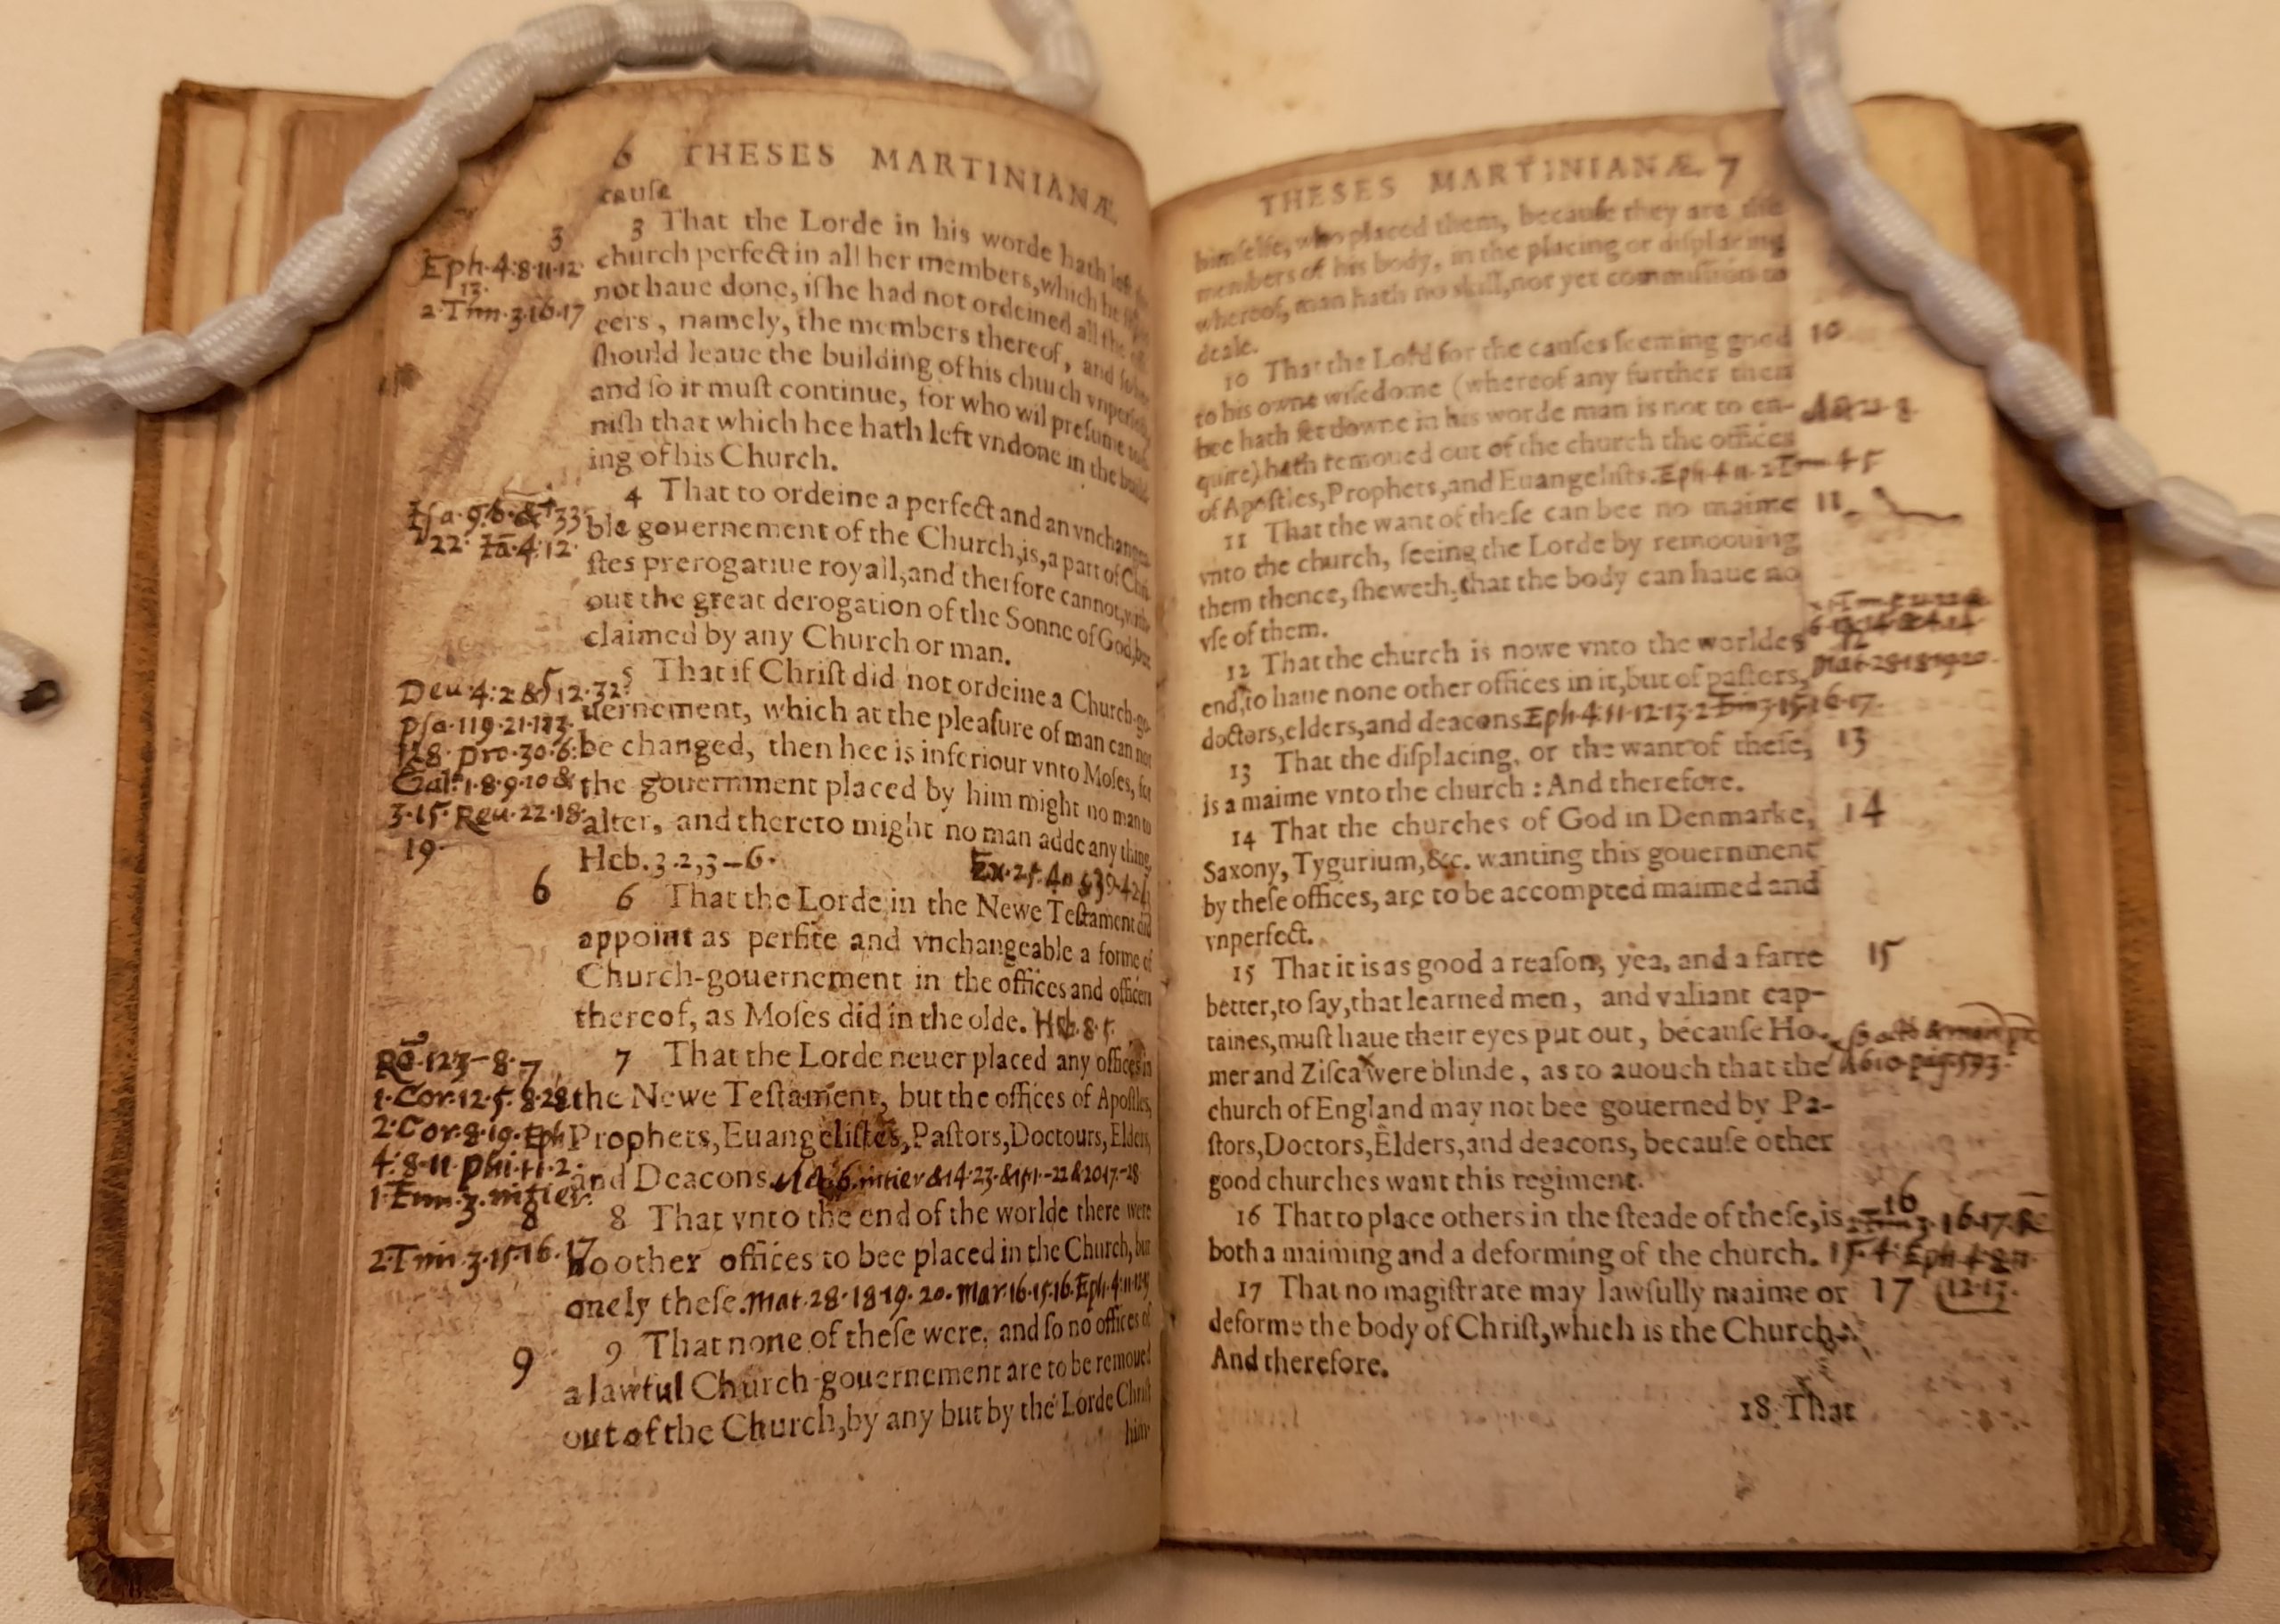 6 THESES MARTINIANÆ.
cauſe
3 That the Lorde in his worde hath left
church perfect in all her members, which he
not haue done, if he had not ordeined all the
cers, namely, the members thereof, and ſo
ſhould leaue the building of his church vnperfect,
and ſo it muſt continue, for who wil preſume to
niſh that which hee hath left vndone in the build
ing of his Church.
4 That to ordeine a perfect and an vnchangea
ble gouernement of the Church, is, a part of Chri
ſtes prerogatiue royall, and therfore cannot, with
out the great derogation of the Sonne of God, bee
claimed by any Church or man.
5 That if Chriſt did not ordeine a Church-go
uernement, which at the pleaſure of man can not
be changed, then hee is inferiour vnto Moſes, for
the gouernment placed by him might no man to
alter, and thereto might no man adde any thing,
Heb. 3.2,3–6.
6 That the Lorde in the Newe Teſtament did
appoint as perfite and vnchangeable a forme of
Church-gouernement in the offices and officers
thereof, as Moſes did in the olde. Heb. 8. 5.
7 That the Lorde neuer placed any offices in
the Newe Teſtament, but the offices of Apoſtles,
Prophets, Euangeliſtes, Paſtors, Doctours, Elders,
and Deacons.
8 That vnto the end of the worlde there were
no other offices to bee placed in the Church, but
onely theſe. Mat. 28.18.19.20. Mar. 16.15.16. Eph. 4.11.12.13
9 That none of theſe were, and ſo no offices of
a lawful Church-gouernement are to be remoued
out of the Church, by any but by the Lorde Chriſt
him
3
Eph. 4. 8. 11. 12.
13.
2. Tim. 3. 16. 17
Deu. 4. 2. & 12. 32.
Pſa. 119. 21. 113.
128. Pro. 30. 6.
Gal. 1. 8. 9. 10 &
3. 15. Reu. 22. 18.
19.
6
7
1. Cor. 12. 5. 8. 28
2. Cor. 8. 19. Eph
4. 8. 11. Phi. 1. 1. 2.
1. Tim. 3.
8
2. Tim. 3. 15. 16. 17
9
THESES MARTINIANÆ. 7
himſelfe, who placed them, becauſe they are the
members of his body, in the placing or diſplacing
whereof, man hath no skill, nor yet commiſſion to
deale.
10 That the Lord for the cauſes ſeeming good
to his owne wiſedome (whereof any further then
hee hath ſet downe in his worde man is not to en-
quire) hath remoued out of the church the offices
of Apoſtles, Prophets, and Euangeliſts. Eph. 4. 11.
11 That the want of theſe can bee no maime
vnto the church, ſeeing the Lorde by remoouing
them thence, ſheweth, that the body can haue no
vſe of them.
12 That the church is nowe vnto the worldes
end, to haue none other offices in it, but of paſtors,
doctors, elders, and deacons. Eph. 4. 11. 12. 13. 2 Tim 3 15 16. 17.
13 That the diſplacing, or the want of theſe,
is a maime vnto the church : And therefore.
14 That the churches of God in Denmarke,
Saxony, Tygurium, &c. wanting this gouernment
by theſe offices, are to be accompted maimed and
vnperfect.
15 That it is as good a reaſon, yea, and a farre
better, to ſay, that learned men, and valiant cap-
taines, muſt haue their eyes put out, becauſe Ho-
mer and Ziſca were blinde, as to auouch that the
church of England may not bee gouerned by Pa-
ſtors, Doctors, Elders, and deacons, becauſe other
good churches want this regiment.
16 That to place others in the ſteade of theſe, is
both a maiming and a deforming of the church.
17 That no magiſtrate may lawfully maime or
deforme the body of Chriſt, which is the Church:
And therefore.
18 That
10
11
12
Mat. 28 18 19 20.
13
14
15
16
17